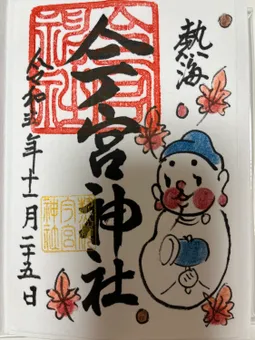 熱海
今宮神社
今宮
神社
今宮
神社
令和五年十一月二十五日